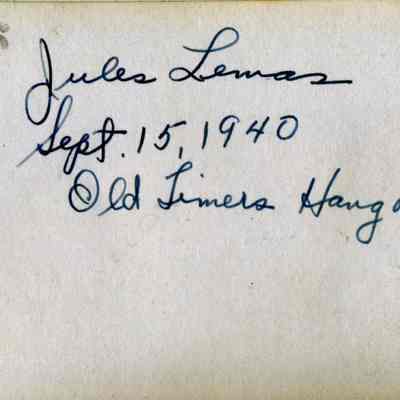 Jules Lemas
Sept. 15, 1940
Old Timers Hang